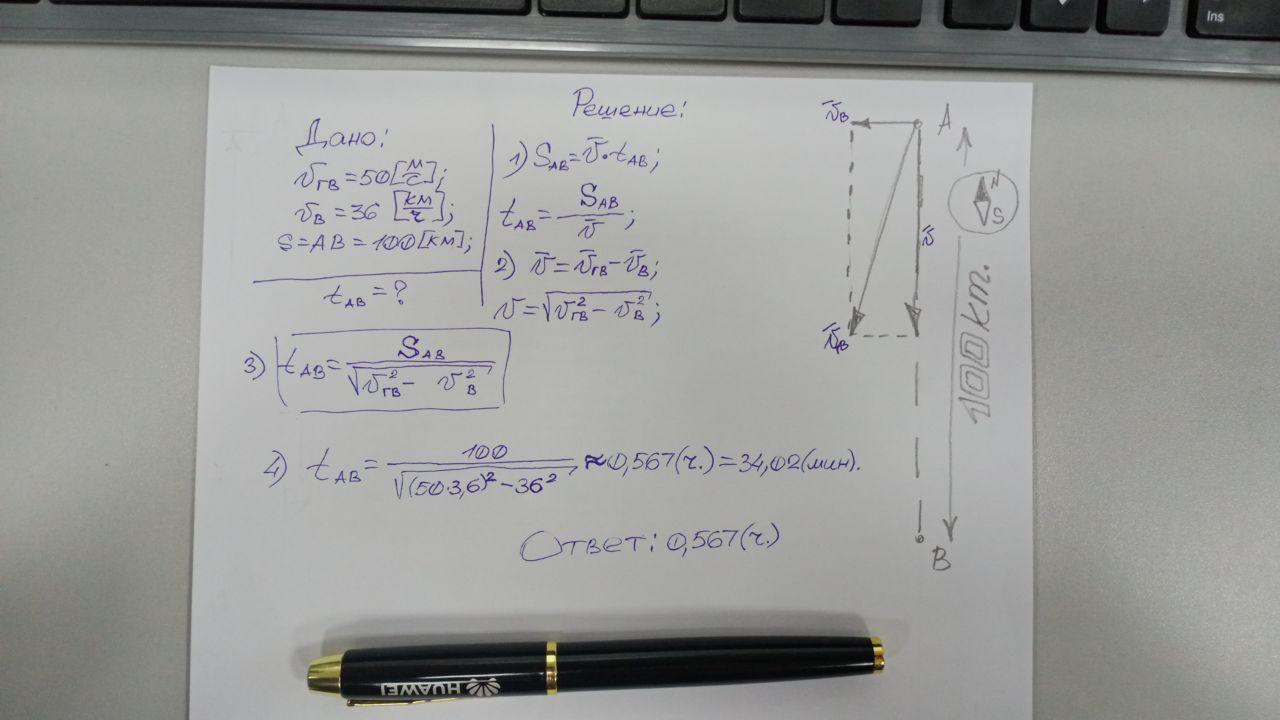 Ins
Решение:
Дано:
v_ГВ = 50 [м/с];
v_В = 36 [км/ч];
S = AB = 100 [км];
t_AB = ?
1) S_AB = v̄ · t_AB;
t_AB = S_AB / v̄;
2) v̄ = v̄_ГВ − v̄_В;
v = √(v_ГВ² − v_В²);
3) t_AB = S_AB / √(v_ГВ² − v_В²)
4) t_AB = 100 / √((50·3,6)² − 36²) ≈ 0,567 (ч.) = 34,02 (мин).
Ответ: 0,567 (ч.)
v̄_В
A
N
S
v̄
100 km.
B
HUAWEI